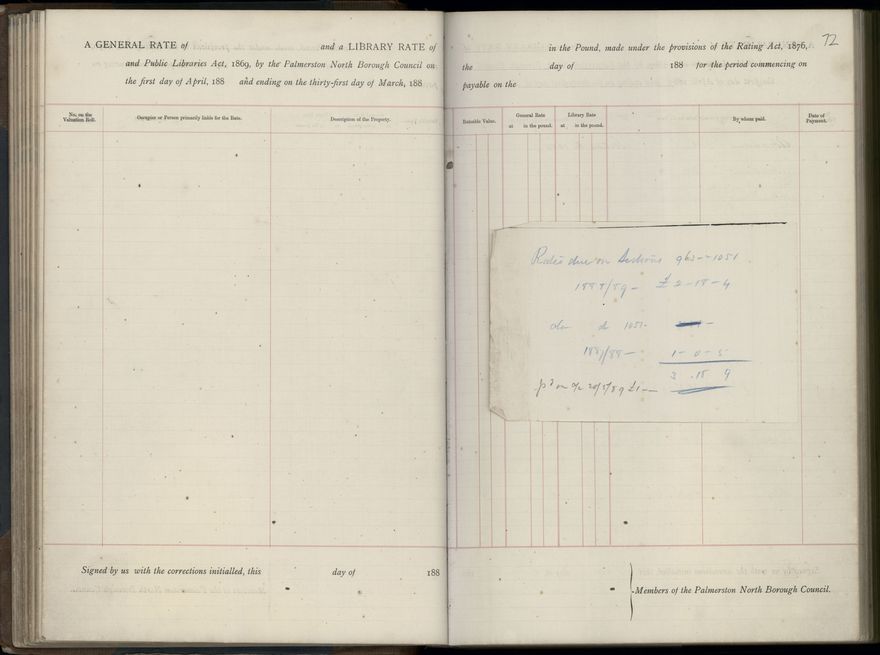 72
A GENERAL RATE of and a LIBRARY RATE of in the Pound, made under the provisions of the Rating Act, 1876,
and Public Libraries Act, 1869, by the Palmerston North Borough Council on the day of 188 for the period commencing on
the first day of April, 188 and ending on the thirty-first day of March, 188 payable on the
No. on the Valuation Roll.
Occupier or Person primarily liable for the Rate.
Description of the Property.
Rateable Value.
General Rate
at in the pound.
Library Rate
at in the pound.
By whom paid.
Date of Payment.
Rates due on Sections 963 - 1051
1888/89 - £2-18-4
do 1051 -
1887/88 - 1-0-5
3.18 9
pd on a/c 20/5/89 £1 -
Signed by us with the corrections initialled, this day of 188
Members of the Palmerston North Borough Council.